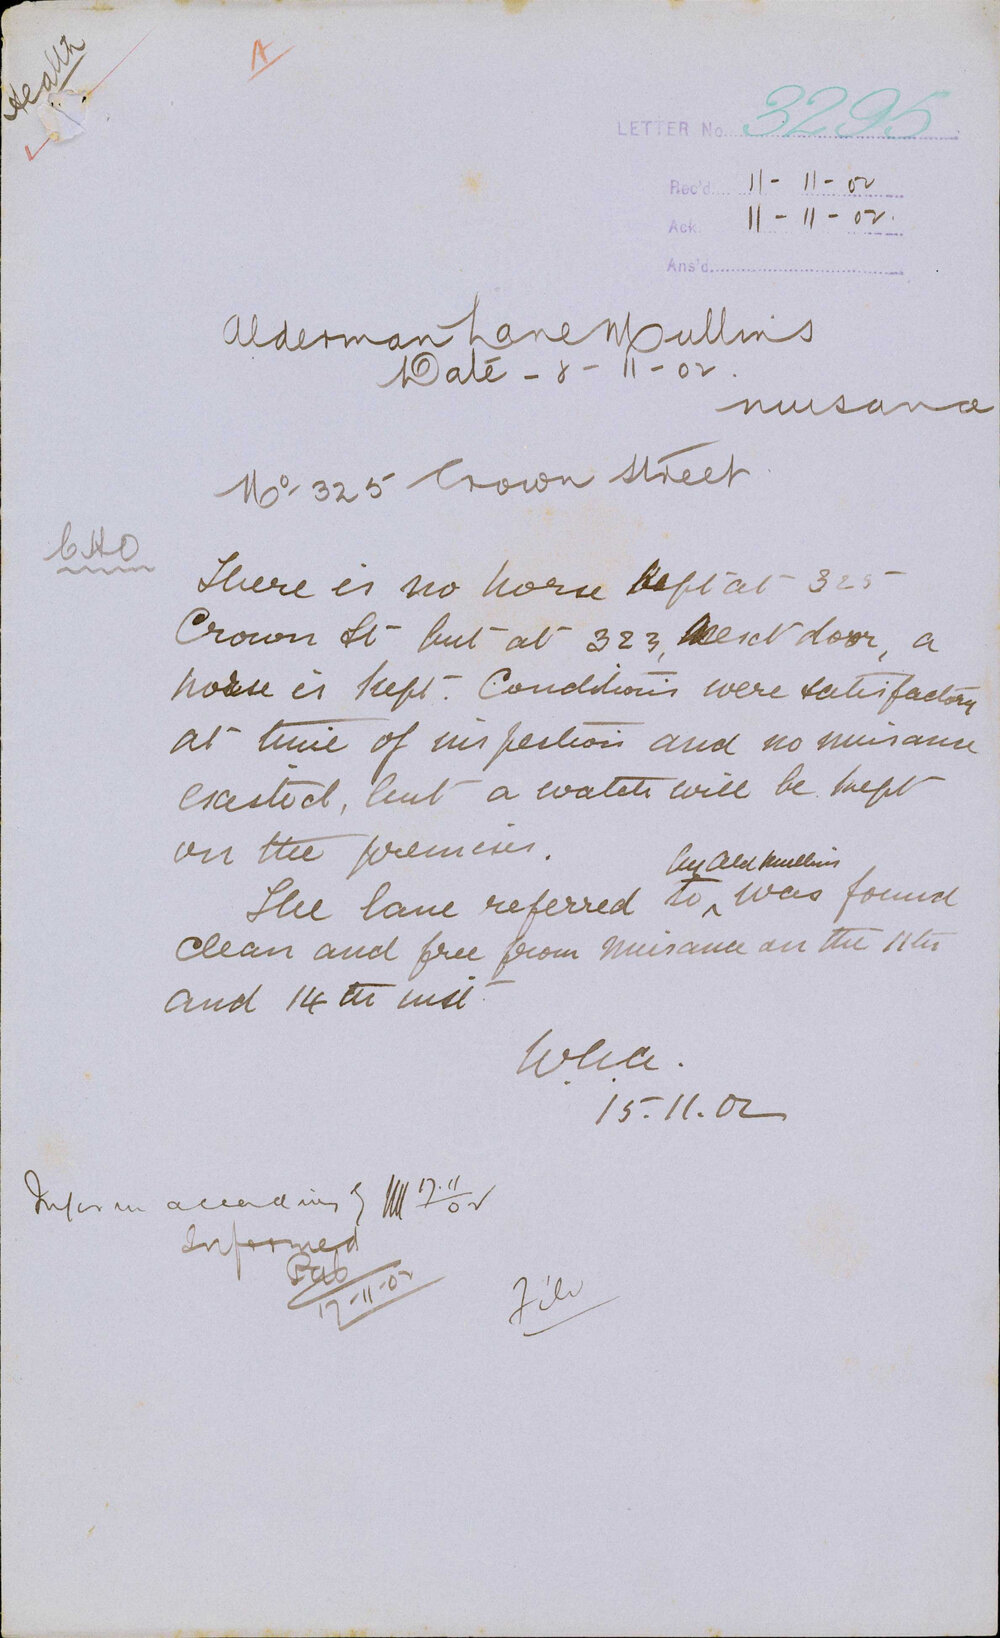 Health
A
LETTER No. 3295
Rec'd. 11-11-02
Ack. 11-11-02.
Ans'd.
Alderman Lane Mullins
Date - 8-11-02.
nuisance
No. 325 Crown Street
CHO
There is no horse kept at 325
Crown St but at 323, next door, a
horse is kept. Conditions were satisfactory
at time of inspection and no nuisance
existed, but a watch will be kept
on the premises.
by Ald Mullins
The lane referred to ^ was found
clean and free from nuisance on the 11th
and 14th inst
15.11.02
Inform accordingly 17.11/02
Informed
17-11-02
File